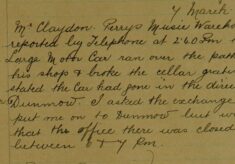 7 March
Mr Claydon. Perrys Music Wareho
reported by Telephone at 2.40 Pm
Large Motor Car ran over the path
his shop & broke the cellar grat
stated the Car had gone in the dire
Dunmow. I asked the exchange
put me on to Dunmow but w
that the office there was closed
between 6 & 7 Pm.